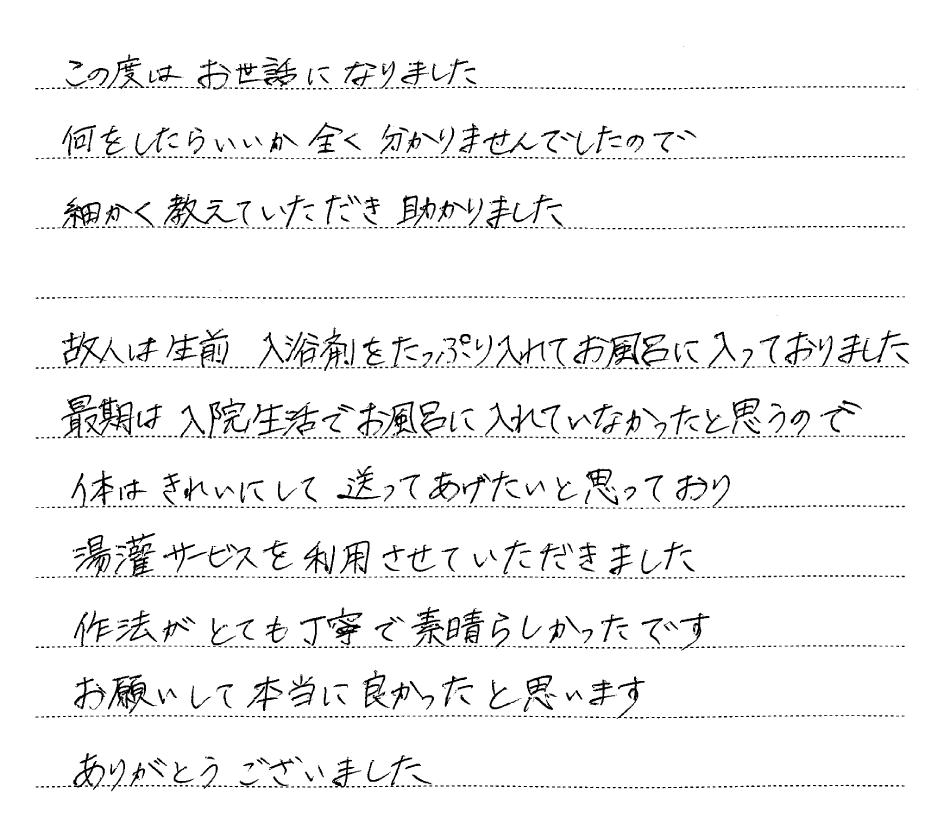 この度は お世話に なりました
何をしたらいいか 全く 分かりませんでしたので
細かく 教えていただき 助かりました
故人は生前 入浴剤をたっぷり入れてお風呂に 入っておりました
最期は 入院生活でお風呂に 入れていなかったと思うので
体は きれいにして 送って あげたいと思っており
湯灌サービスを 利用させていただきました
作法が とても 丁寧で 素晴らしかったです
お願いして 本当に 良かったと思います
ありがとう ございました